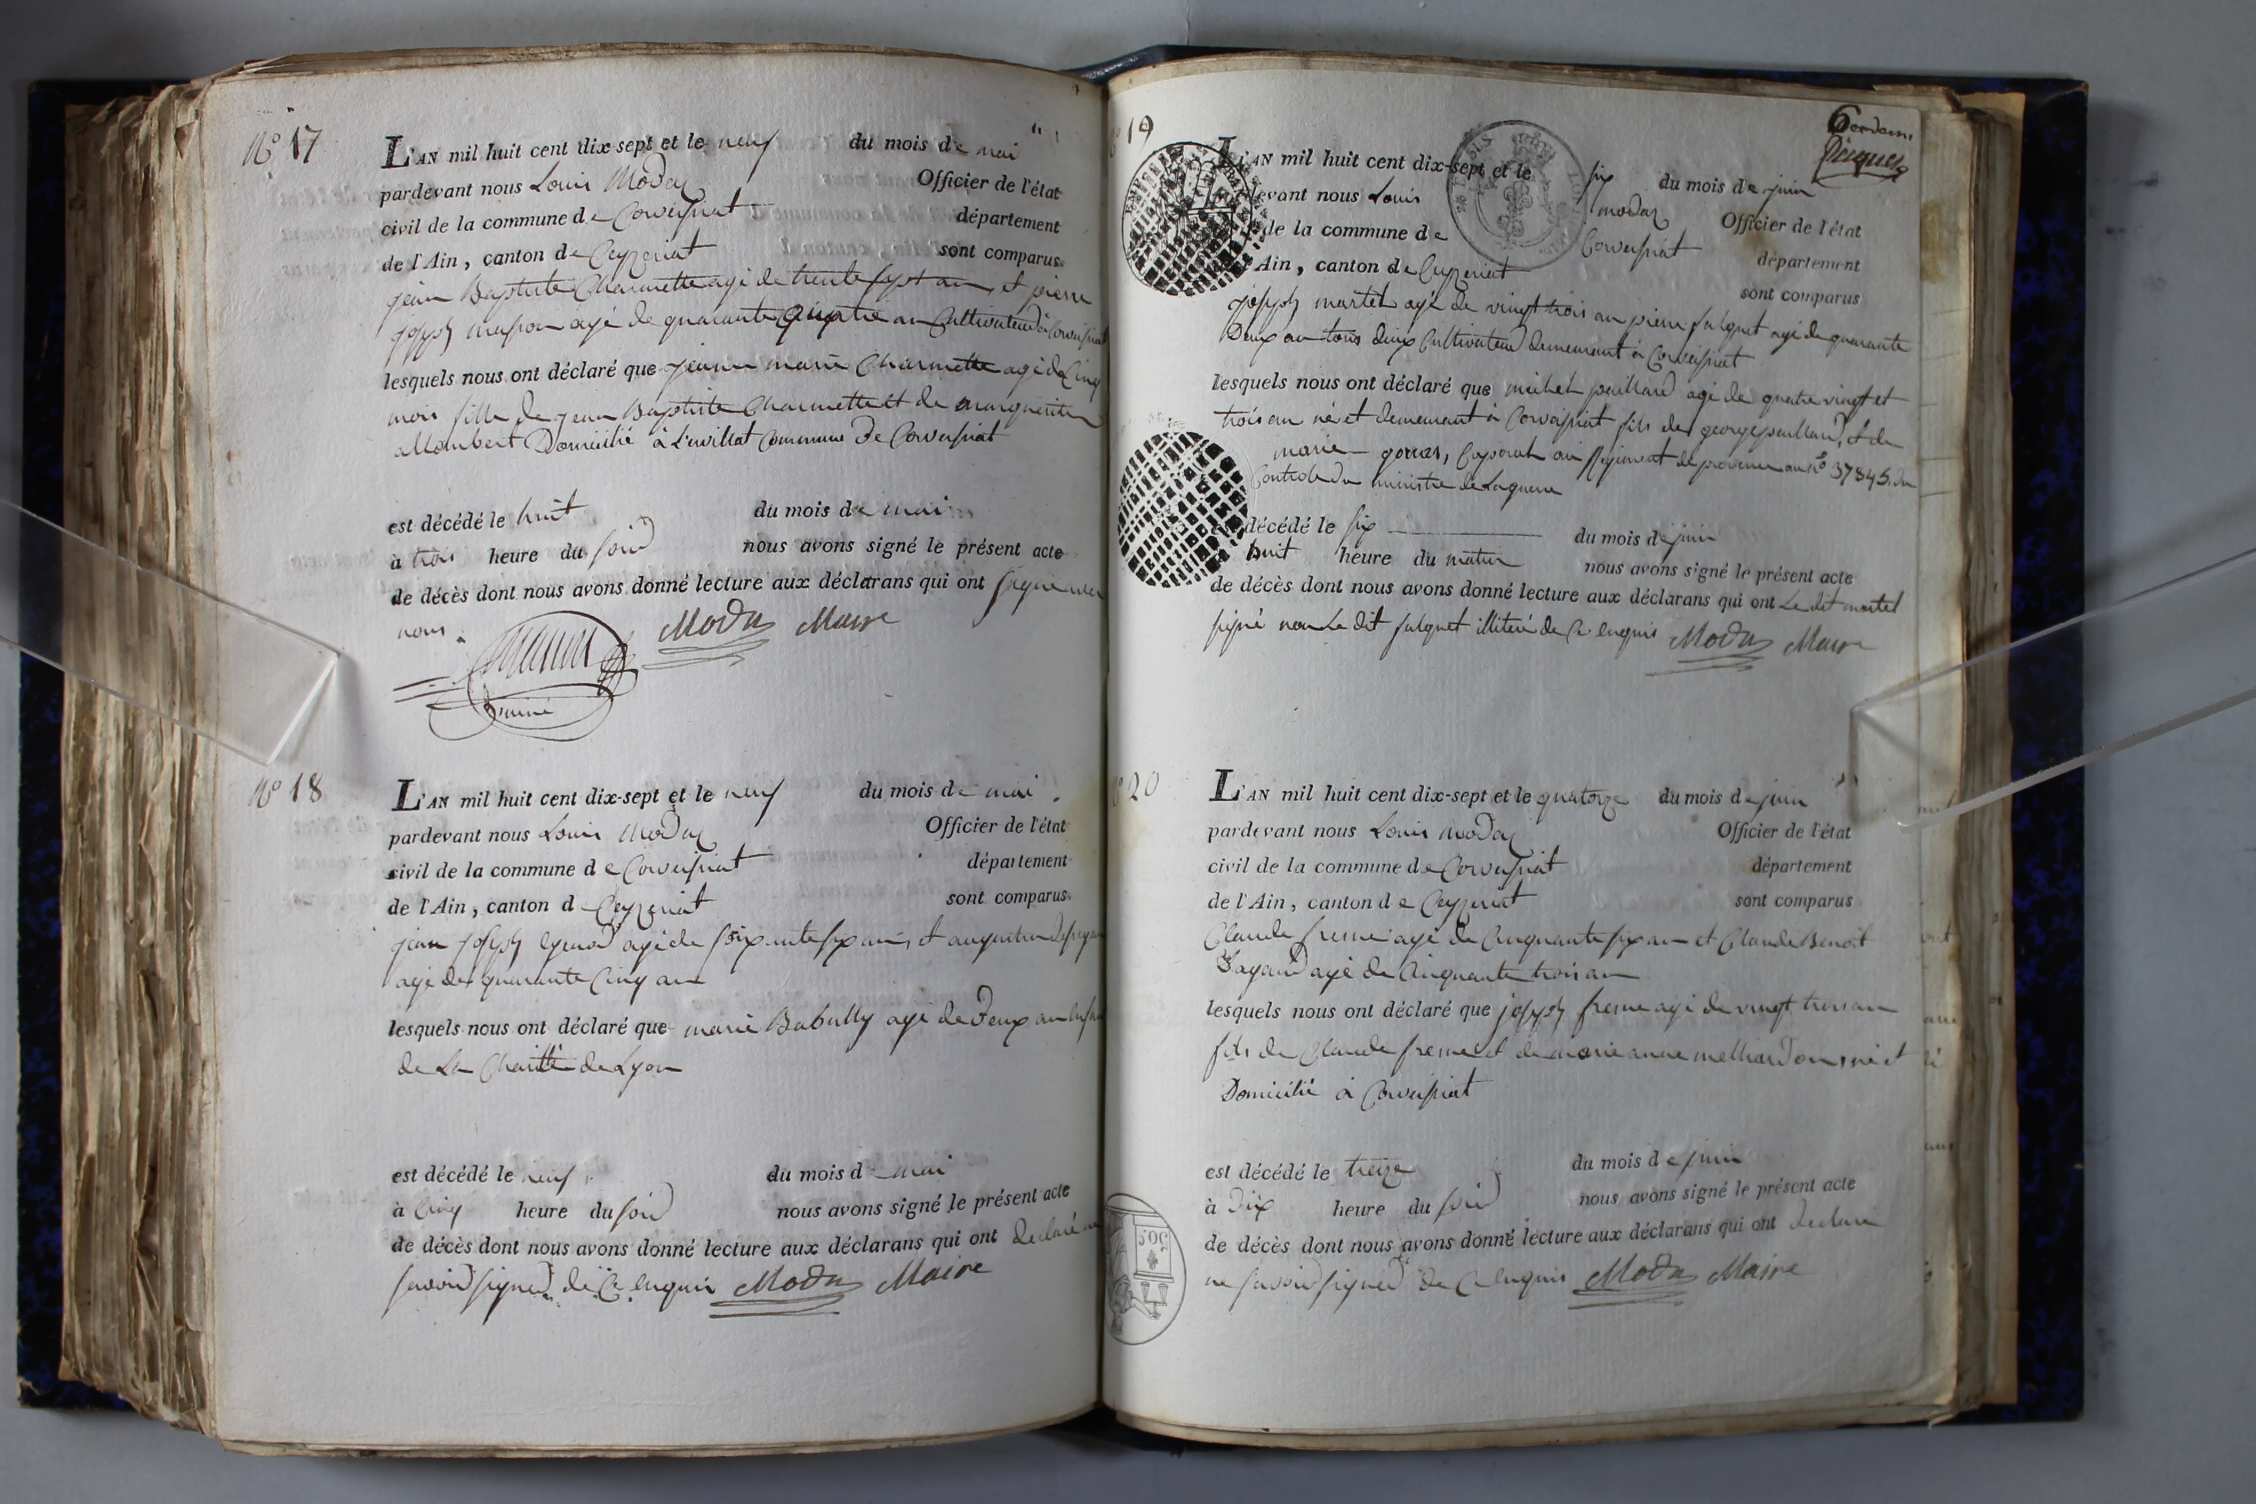 N° 17
L'AN mil huit cent dix-sept et le neuf du mois de mai
pardevant nous Louis Modas Officier de l'état
civil de la commune de Corveissiat département
de l'Ain, canton de Ceyzeriat sont comparus
jean Baptiste Charmette agé de trente sept ans, et pierre
joseph agé de quarante quatre an Cultivateur à Corveissiat
lesquels nous ont déclaré que jeanne marie Charmette agé de Cinq
mois fille de jean Baptiste Charmette et de marguerite
allombert Domicilié à L'uvillat Commune De Corveissiat
est décédé le huit du mois de mai
à trois heure du soir nous avons signé le présent acte
de décès dont nous avons donné lecture aux déclarans qui ont signé avec
nous
Modas Maire
N° 18
L'AN mil huit cent dix-sept et le neuf du mois de mai
pardevant nous Louis Modas Officier de l'état
civil de la commune de Corveissiat département
de l'Ain, canton de Ceyzeriat sont comparus
jean joseph agé de soixante six ans, et
agé de quarante Cinq an
lesquels nous ont déclaré que marie Babully agé de Deux an
de La Charitté de Lyon
est décédé le neuf du mois de mai
à Cinq heure du soir nous avons signé le présent acte
de décès dont nous avons donné lecture aux déclarans qui ont declaré ne
savoir signer de Ce enquis Modas Maire
6
19
L'AN mil huit cent dix-sept et le six du mois de juin
devant nous Louis modas Officier de l'état
de la commune de Corveissiat département
Ain, canton de Ceyzeriat sont comparus
joseph martel agé de vingt trois an pierre falquet agé de quarante
Deux an tous deux Cultivateur demeurant à Corveissiat
lesquels nous ont déclaré que michel paillard agé de quatre vingt et
trois an né et demeurant à Corveissiat fils de george paillard, et de
marie Caporal au Regiment de provence au n° 37845. du
Controle du ministre de La guerre
décédé le six du mois de juin
huit heure du matin nous avons signé le présent acte
de décès dont nous avons donné lecture aux déclarans qui ont Le dit martel
signé non Le dit falquet illiteré de Ce enquis Modas Maire
20
L'AN mil huit cent dix-sept et le quatorze du mois de juin
pardevant nous Louis Modas Officier de l'état
civil de la commune de Corveissiat département
de l'Ain, canton de Ceyzeriat sont comparus
Claude fresne agé de Cinquante six an et Claude Benoit
agé de Cinquante trois an
lesquels nous ont déclaré que joseph fresne agé de vingt trois an
fils de Claude fresne et de marie anne né et
Domicilié à Corveissiat
est décédé le treize du mois de juin
à Dix heure du soir nous avons signé le présent acte
de décès dont nous avons donné lecture aux déclarans qui ont declaré
ne savoir signer de Ce enquis Modas Maire